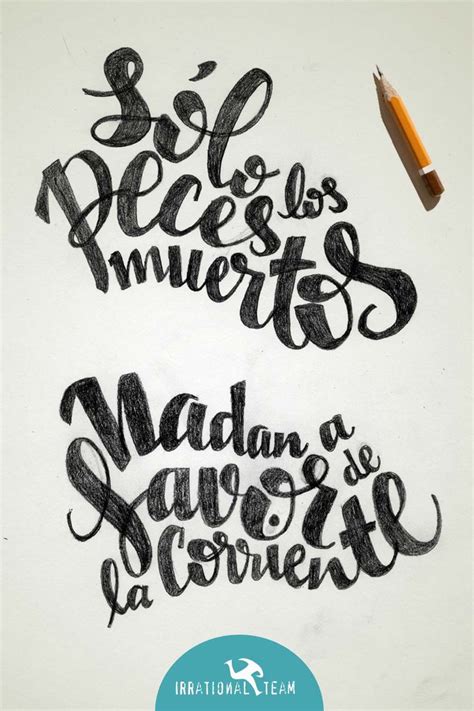 Sólo
los
peces
muertos
Nadan a
favor de
la corriente
IRRATIONAL TEAM